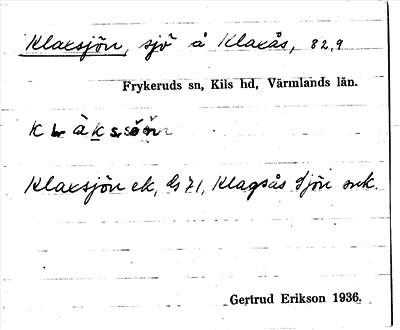 Klaxsjön, sjö å Klaxås, 82,9
Frykeruds sn, Kils hd, Värmlands län.
Klaxsjön ek, Klagsås Sjön
Gertrud Erikson 1936.